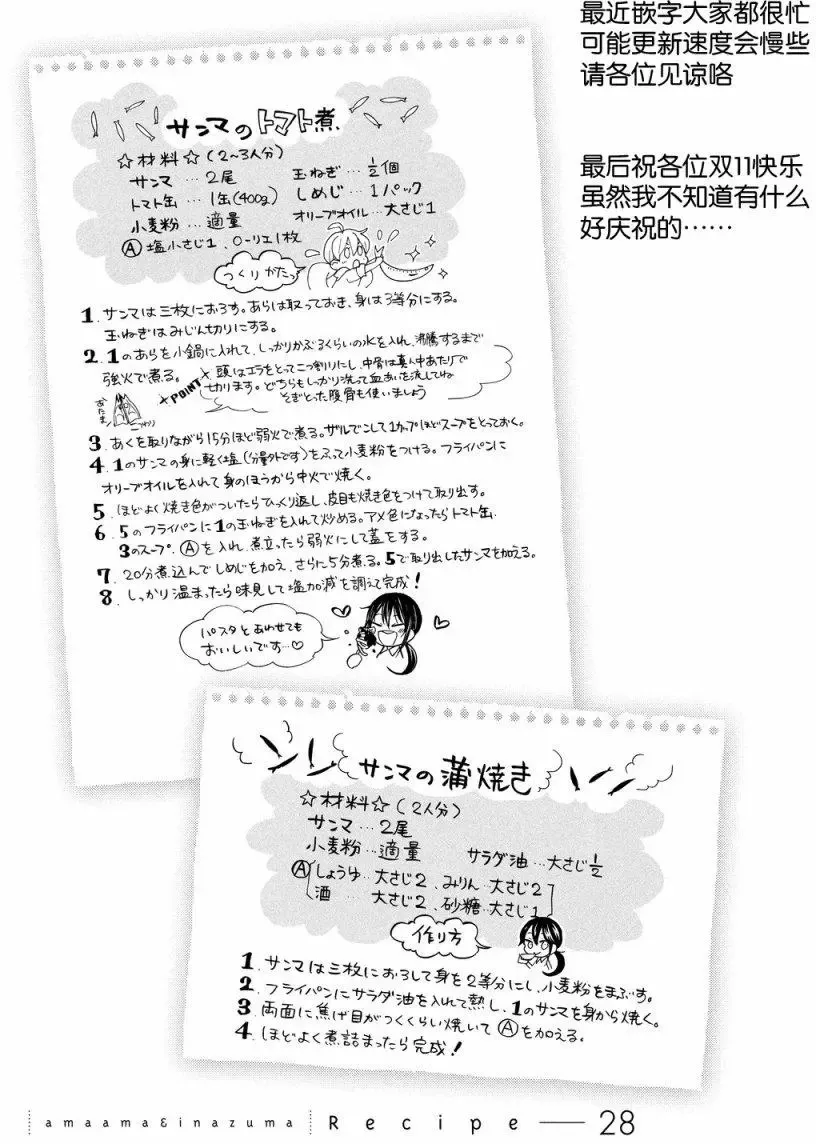 最近嵌字大家都很忙
可能更新速度会慢些
请各位见谅咯
最后祝各位双11快乐
虽然我不知道有什么
好庆祝的……
サンマのトマト煮
☆材料☆(2~3人分)
サンマ…2尾
トマト缶…1缶(400g)
小麦粉…適量
玉ねぎ…½個
しめじ…1パック
オリーブオイル…大さじ1
Ⓐ塩小さじ1、ローリエ1枚
つくりかた
1.サンマは三枚におろす。あらは取っておき、身は3等分にする。
玉ねぎはみじん切りにする。
2.1のあらを小鍋に入れて、しっかりかぶるくらいの水を入れ、沸騰するまで
強火で煮る。
POINT
頭はエラをとって二つ割りにし、中骨は真ん中あたりで
切ります。どちらもしっかり洗って血あいを流してね
そぎとった腹骨も使いましょう
あたま
3 あくを取りながら15分ほど弱火で煮る。ザルでこして1カップほどスープをとっておく。
4.1のサンマの身に軽く塩(分量外です)をふって小麦粉をつける。フライパンに
オリーブオイルを入れて身のほうから中火で焼く。
5 ほどよく焼き色がついたらひっくり返し、皮目も焼き色をつけて取り出す。
6.5のフライパンに1の玉ねぎを入れて炒める。アメ色になったらトマト缶、
3のスープ、Ⓐを入れ、煮立ったら弱火にして蓋をする。
7 20分煮込んでしめじを加え、さらに5分煮る。5で取り出したサンマを加える。
8.しっかり温まったら味見して塩加減を調えて完成!
パスタとあわせても
おいしいです…♡
サンマの蒲焼き
☆材料☆(2人分)
サンマ…2尾
小麦粉…適量
サラダ油…大さじ½
Ⓐしょうゆ…大さじ2、みりん…大さじ2
酒…大さじ2、砂糖…大さじ1
作り方
1.サンマは三枚におろして身を2等分にし、小麦粉をまぶす。
2.フライパンにサラダ油を入れて熱し、1のサンマを身から焼く。
3.両面に焦げ目がつくくらい焼いてⒶを加える。
4.ほどよく煮詰まったら完成!
amaama&inazuma Recipe — 28